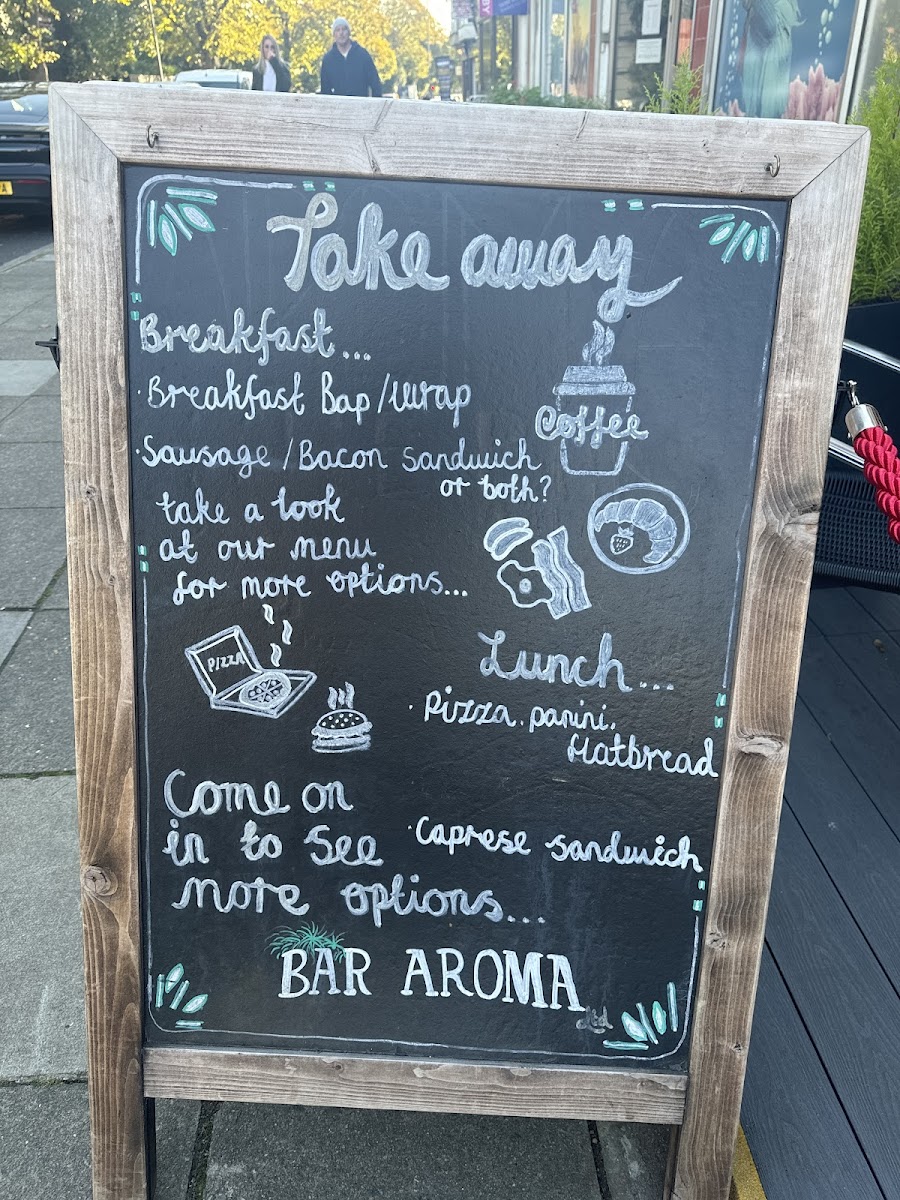 Take away
Breakfast...
· Breakfast Bap/Wrap
Coffee
· Sausage/Bacon Sandwich
or both?
take a look
at our menu
for more options...
PIZZA
Lunch...
· Pizza, panini,
flatbread
Come on
in to see
more options...
· Caprese sandwich
BAR AROMA
Ltd